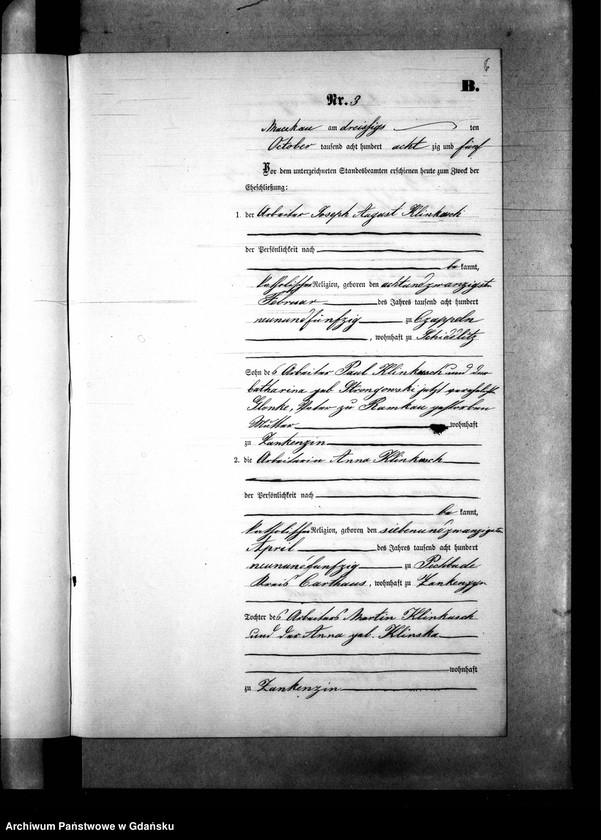 6
B.
Nr. 3
Mackau am dreissigs ten
October tausend acht hundert acht zig und fünf
Vor dem unterzeichneten Standesbeamten erschienen heute zum Zweck der
Eheschließung:
1. der Arbeiter Joseph August Klinkusch
der Persönlichkeit nach
be kannt,
katholischer Religion, geboren den achtundzwanzigsten
Februar des Jahres tausend acht hundert
neunundfünfzig zu Czappeln
, wohnhaft zu Schidlitz
Sohn des Arbeiter Paul Klinkusch und der
Catharina geb. Strongowski jetzt verehelichte
Glonke, Vater zu Ramkau gestorben
Mutter wohnhaft
zu Zankenzin
2. die Arbeiterin Anna Klinkusch
der Persönlichkeit nach
be kannt,
katholischer Religion, geboren den siebenundzwanzigsten
April des Jahres tausend acht hundert
neunundfünfzig zu
Kreis Carthaus, wohnhaft zu
Tochter des Arbeiters Martin Klinkusch
und der Anna geb. Klinska
wohnhaft
zu Zankenzin
Archiwum Państwowe w Gdańsku